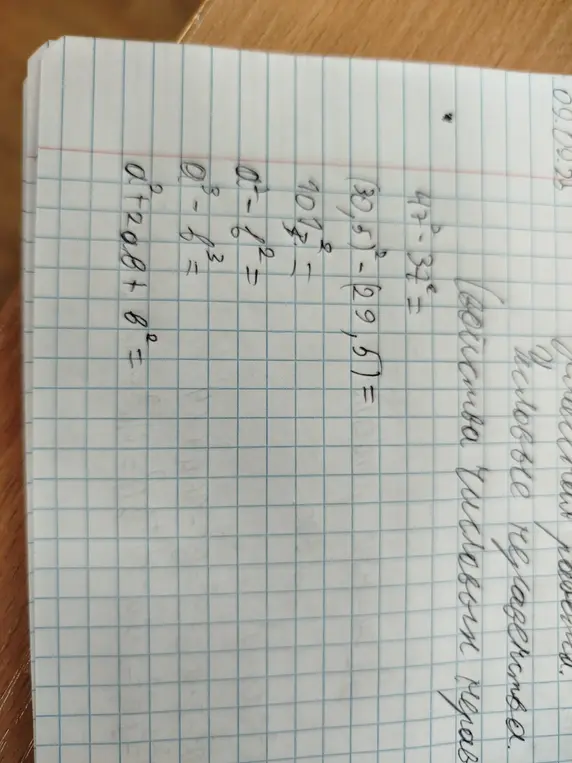 09.09.23
работа.
Числовые неравенства.
Свойства числовых нерав
47² - 37² =
(30,5)² - (29,5) =
101² =
a² - b² =
a³ - b³ =
a² + 2ab + b² =